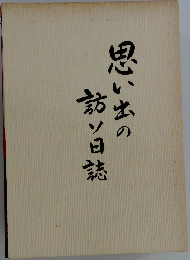 思い出の
訪ソ日誌